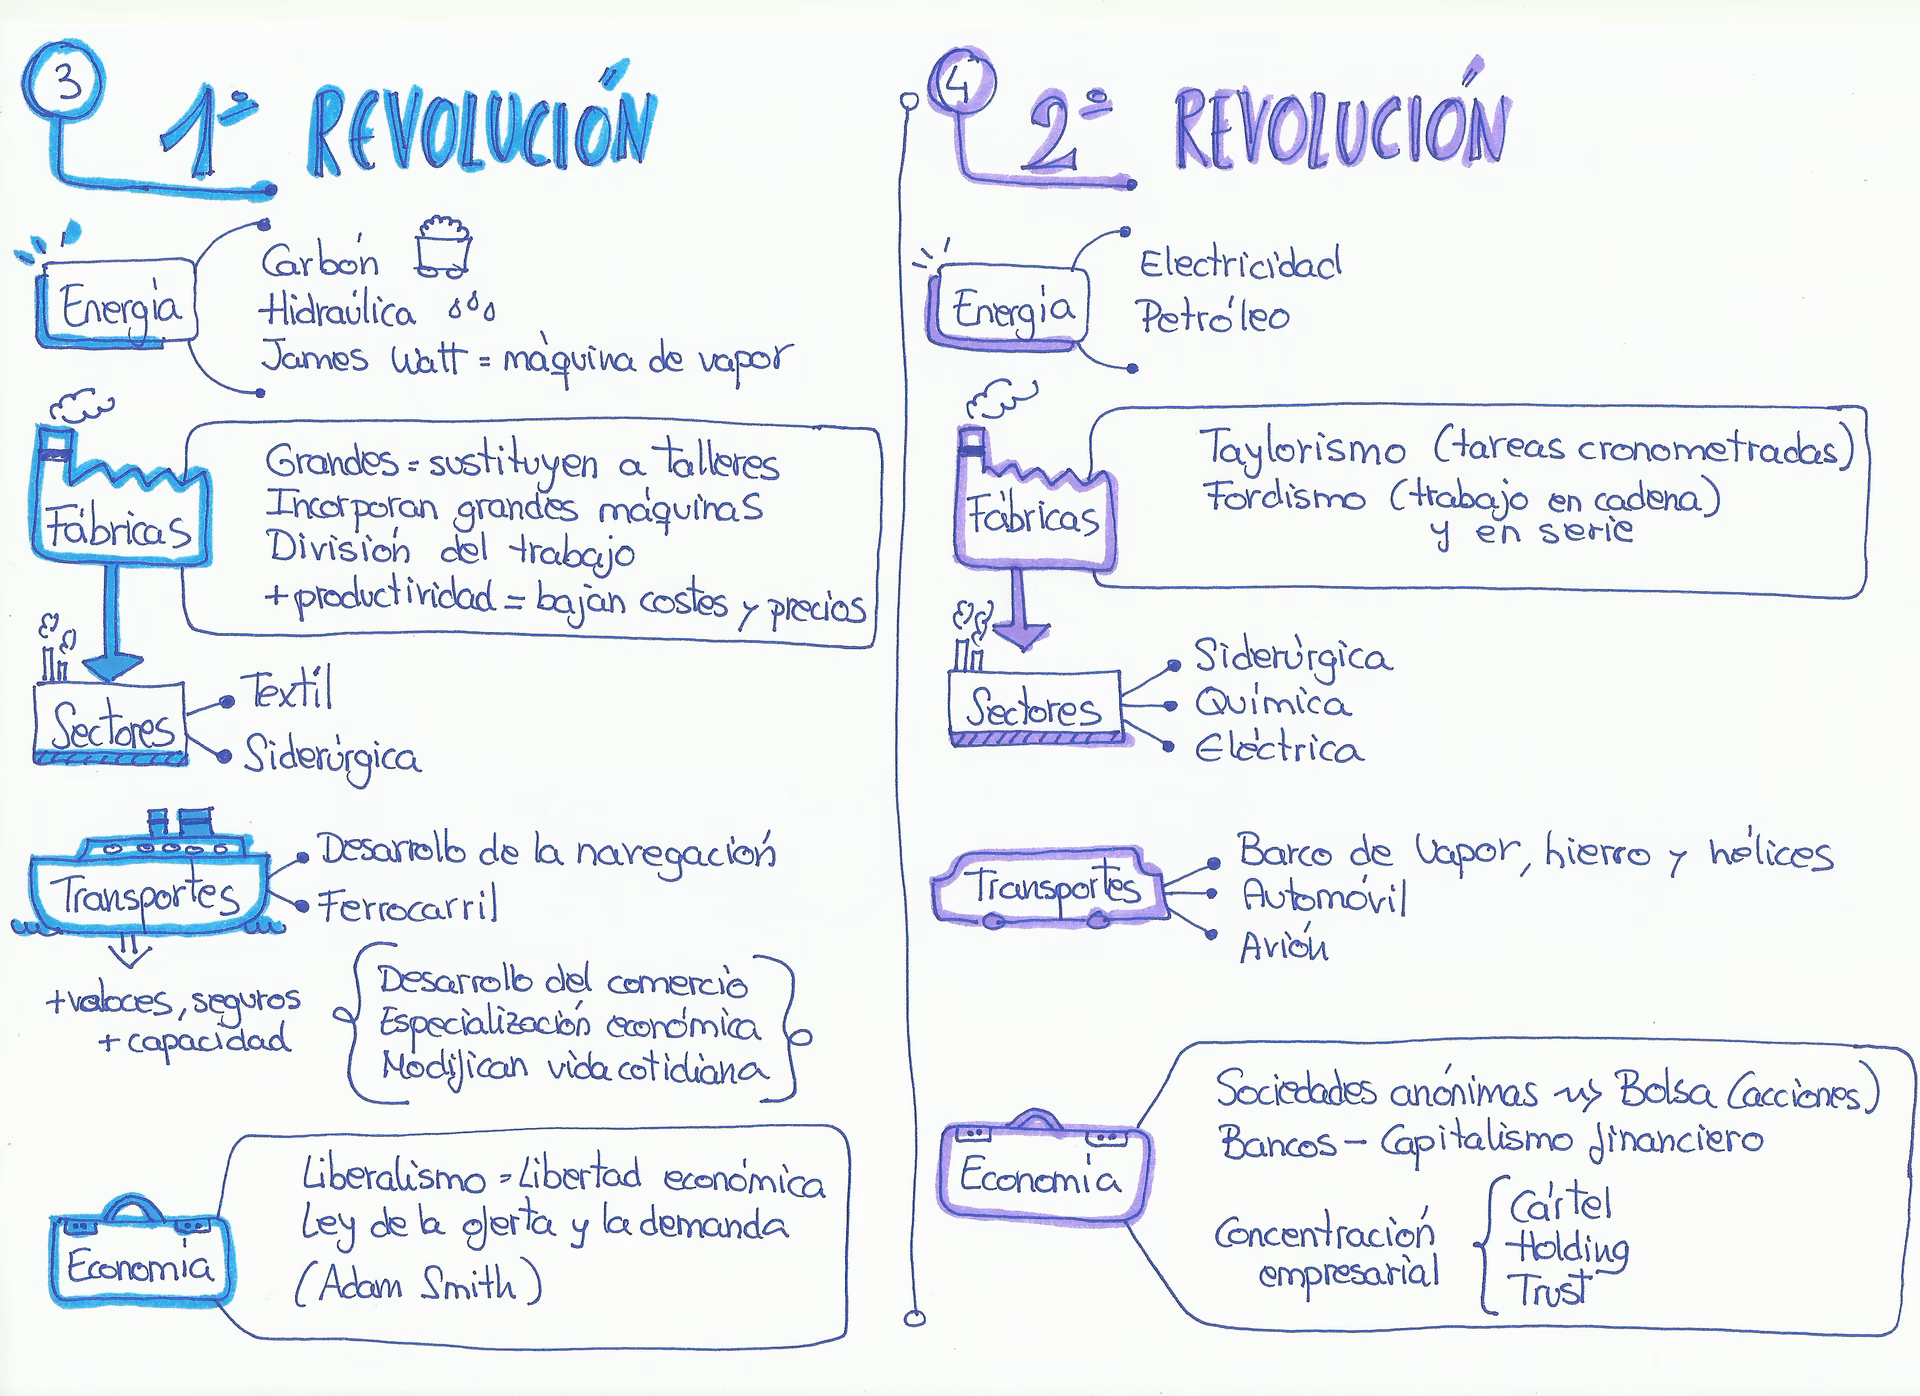 3
1ª REVOLUCIÓN
Energía
Carbón
Hidraúlica
James Watt = máquina de vapor
Fábricas
Grandes = sustituyen a talleres
Incorporan grandes máquinas
División del trabajo
+ productividad = bajan costes y precios
Sectores
Textíl
Siderúrgica
Transportes
Desarrollo de la navegación
Ferrocarril
+ veloces, seguros
+ capacidad
Desarrollo del comercio
Especialización económica
Modifican vida cotidiana
Economía
Liberalismo = Libertad económica
Ley de la oferta y la demanda
(Adam Smith)
4
2ª REVOLUCIÓN
Energía
Electricidad
Petróleo
Fábricas
Taylorismo (tareas cronometradas)
Fordismo (trabajo en cadena)
y en serie
Sectores
Siderúrgica
Química
Eléctrica
Transportes
Barco de vapor, hierro y hélices
Automóvil
Avión
Economía
Sociedades anónimas → Bolsa (acciones)
Bancos - Capitalismo financiero
Concentración
empresarial
Cártel
Holding
Trust